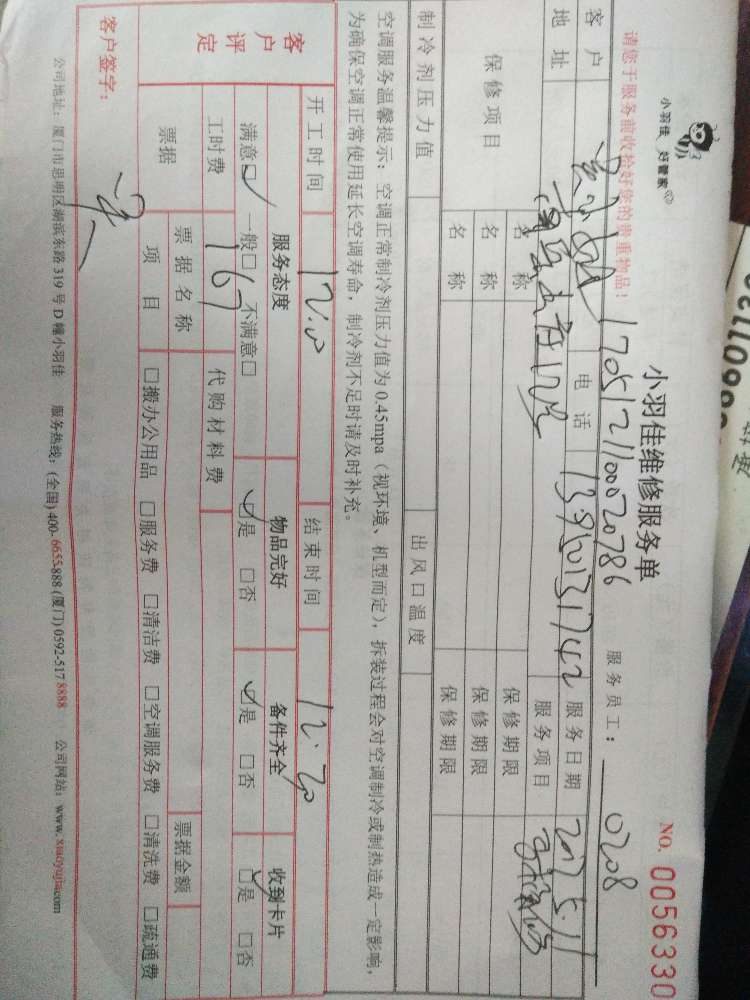 小羽佳 好管家
小羽佳维修服务单
NO. 0056330
请您于服务前收拾好您的贵重物品！
170512110020786
服务员工： 0208
客户 电话 服务日期
地址 服务项目
保修项目 名称 保修期限
名称 保修期限
名称 保修期限
制冷剂压力值 出风口温度
空调服务温馨提示：空调正常制冷剂压力值为0.45mpa（视环境、机型而定），拆装过程会对空调制冷或制热造成一定影响，
为确保空调正常使用延长空调寿命，制冷剂不足时请及时补充。
开工时间 12:00 结束时间 12:20
客户评定 服务态度 物品完好 备件齐全 收到卡片
满意☑ 一般□ 不满意□ ☑是 □否 ☑是 □否 ☑是 □否
工时费 167 代购材料费
票据 票据名称 票据金额
项目 □搬办公用品 □服务费 □清洁费 □空调服务费 □清洗费 □疏通费
客户签字：
公司地址：厦门市思明区湖滨东路319号D幢小羽佳 服务热线：(全国) 400-6655-888 (厦门) 0592-517 8888 公司网站：www.xiaoyujia.com